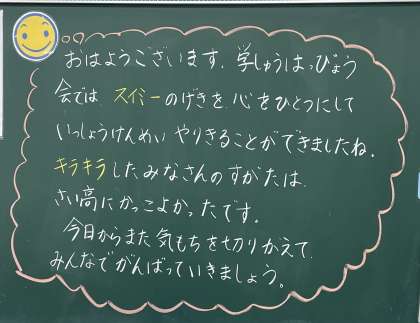 おはようございます。学しゅうはっぴょう
会では、スイミーのげきを、心をひとつにして
いっしょうけんめい やりきることができましたね。
キラキラしたみなさんのすがたは、
さい高にかっこよかったです。
今日からまた気もちを切りかえて、
みんなでがんばっていきましょう。